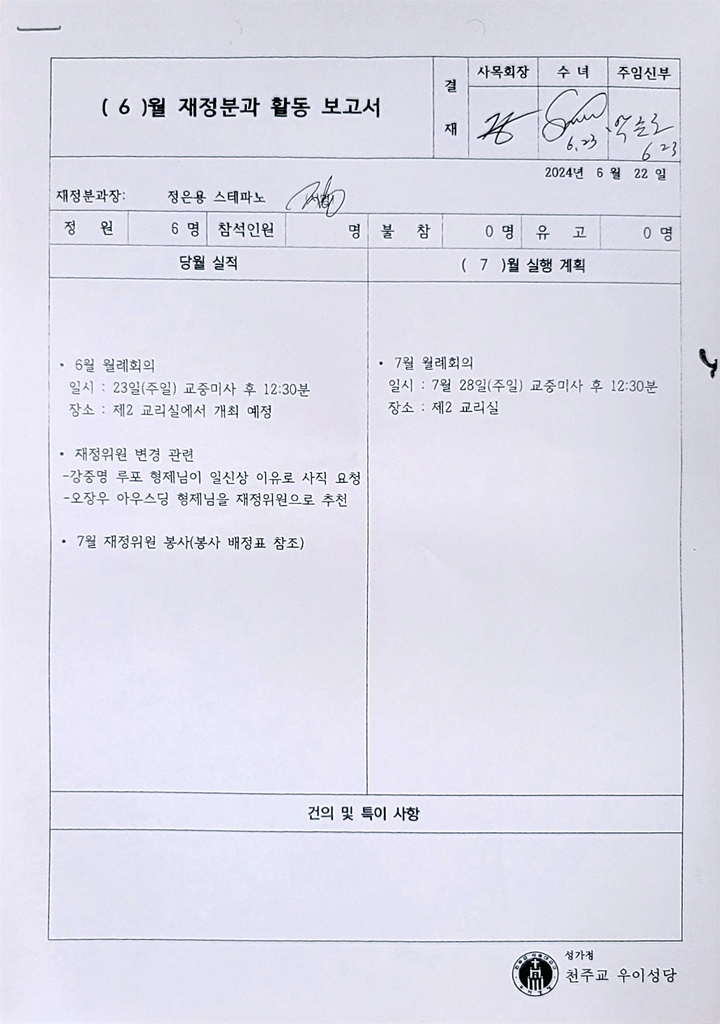 ( 6 )월 재정분과 활동 보고서
결재
사목회장 수녀 주임신부
6.23
6 23
2024년 6월 22일
재정분과장: 정은용 스테파노
정 원 6 명 참석인원 명 불 참 0 명 유 고 0 명
당월 실적
( 7 )월 실행 계획
• 6월 월례회의
일시 : 23일(주일) 교중미사 후 12:30분
장소 : 제2 교리실에서 개최 예정
• 재정위원 변경 관련
-강중명 루포 형제님이 일신상 이유로 사직 요청
-오장우 아우스딩 형제님을 재정위원으로 추천
• 7월 재정위원 봉사(봉사 배정표 참조)
• 7월 월례회의
일시 : 7월 28일(주일) 교중미사 후 12:30분
장소 : 제2 교리실
건의 및 특이 사항
성가정
천주교 우이성당